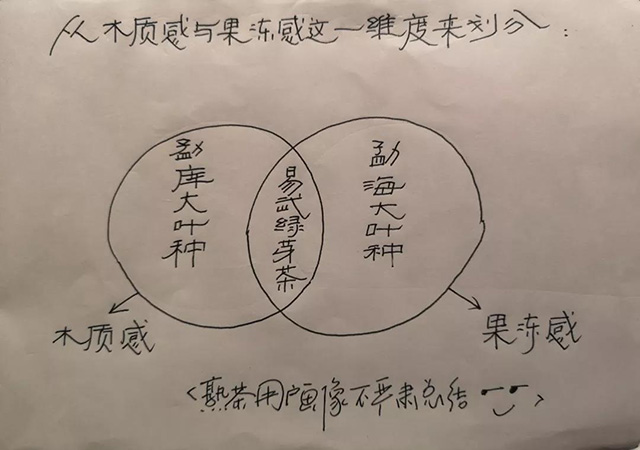 从木质感与果冻感这一维度来划分:
勐库大叶种
易武绿芽茶
勐海大叶种
木质感
果冻感
<熟茶用户画像不严肃总结>